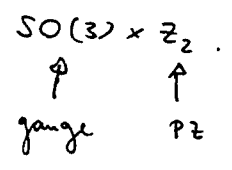 SO(3) × Z₂ .
gauge PZ